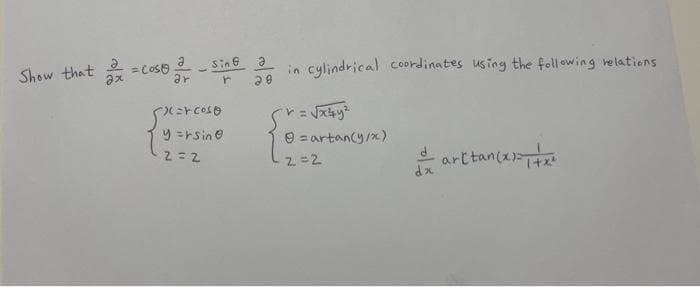 Show that ∂/∂x = cosθ ∂/∂r - sinθ/r ∂/∂θ in cylindrical coordinates using the following relations
{x=rcosθ
y=rsinθ
z=z
{r=√x²+y²
θ=artan(y/x)
z=z
d/dx arctan(x)=1/1+x²